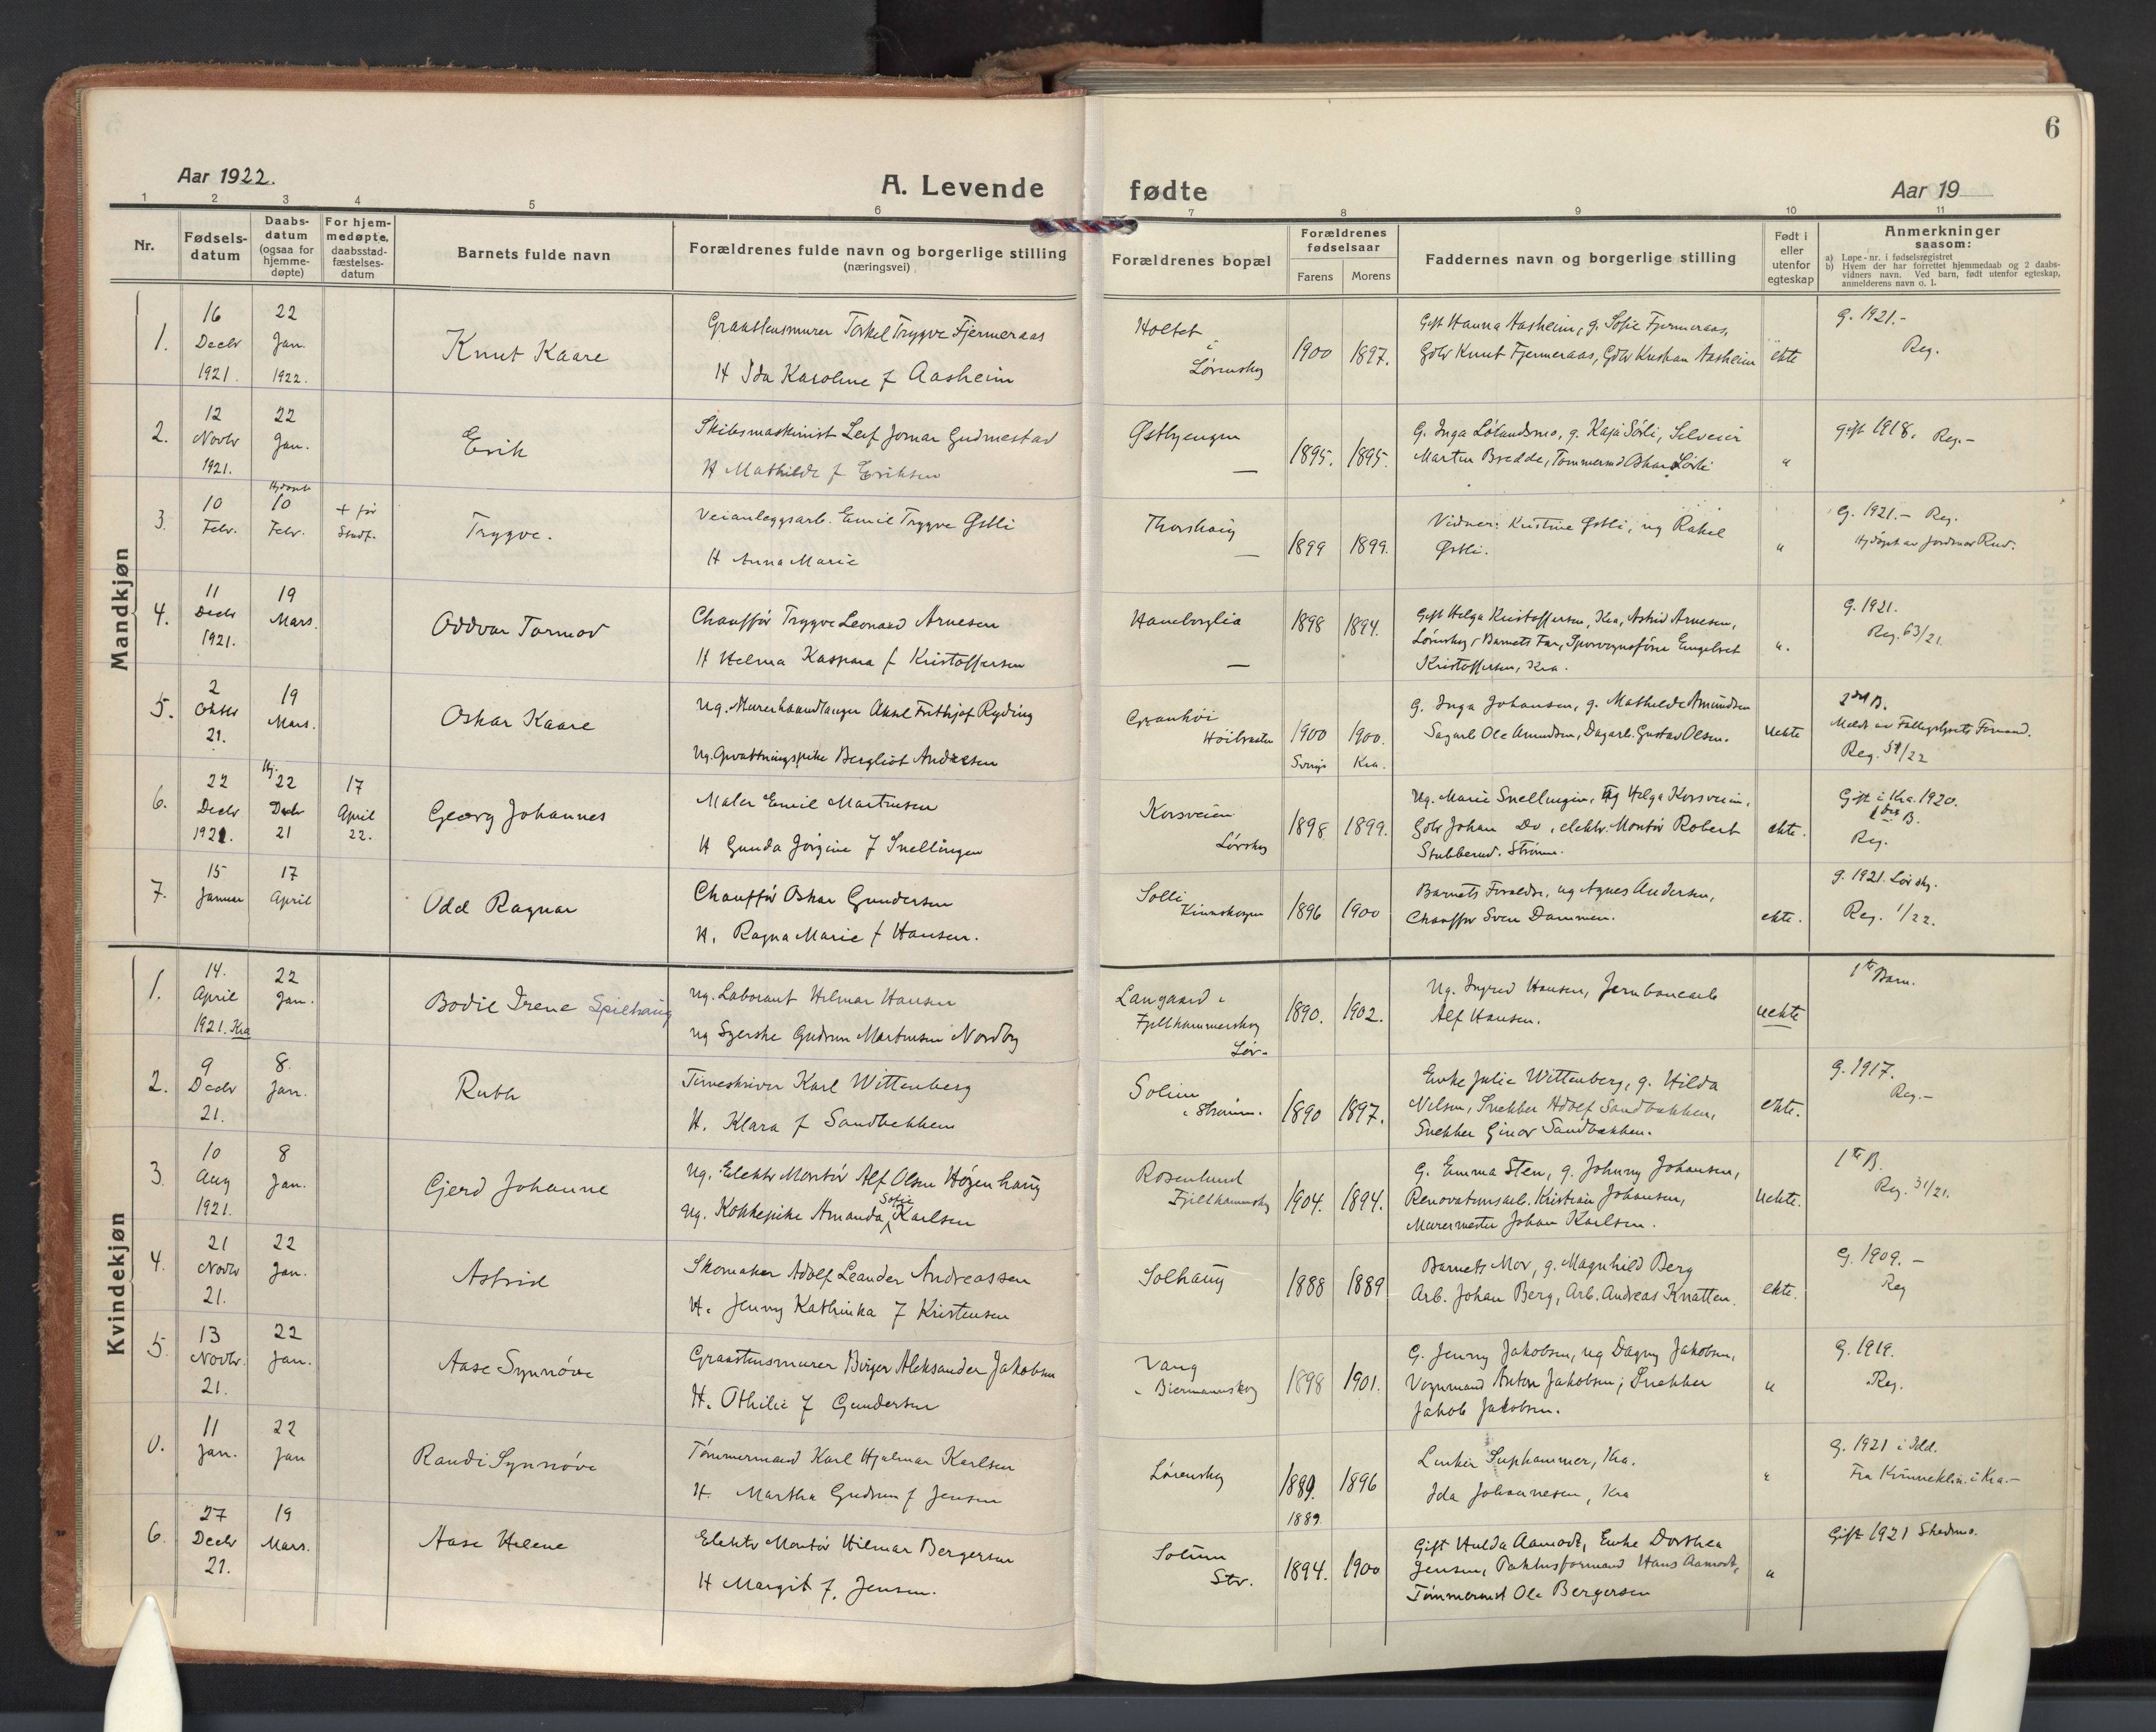 6
Aar 1922.
A. Levende
fødte
Aar 19
1 2 3 4 5 6 7 8 9 10 11
Nr.
Fødsels-
datum
Daabs-
datum
(ogsaa for
hjemme-
døpte)
For hjem-
medøpte,
daabsstad-
fæstelses-
datum
Barnets fulde navn
Forældrenes fulde navn og borgerlige stilling
(næringsvei)
Forældrenes bopæl
Forældrenes
fødselsaar
Farens
Morens
Faddernes navn og borgerlige stilling
Født i
eller
utenfor
egteskap
Anmerkninger
saasom:
a) Løpe-nr. i fødselsregistret
b) Hvem der har forrettet hjemmedaab og 2 daabs-
vidners navn. Ved barn, født utenfor egteskap,
anmelderens navn o. l.
Mandkjøn
1.
16
Decbr
1921.
22
Jan.
1922.
Knut Kaare
Graastensmurer Torkel Trygve Fjermeraas
H Ida Karoline f Aasheim
Holtet
i
Lørenskog
1900
1897.
Gift Hanna Aasheim, g. Sofie Fjermeraas,
Gdbr Knut Fjermeraas, Gdbr Kristian Aasheim
ekte
g. 1921.-
Reg.
2.
12
Novbr
1921.
22
Jan.
Erik
Skibsmaskinist Leif Jomar Gudmestad
H Mathilde f Eriksen
Østbyengen
—
1895.
1895.
G. Inga Lølandsmo, g. Kaja Sørli,
Martin Bredde, Oskar Sørli
"
gift 1918. Reg.-
3.
10
Febr.
Hjdøpt
10
Febr.
+ før
Stadf.
Trygve.
Veianleggsarb. Emil Trygve Østli
H Anna Marie
Thorshaug
—
1899
1899.
Vidner: Kristine Østli, ug Rakel
Østli.
"
G. 1921.- Reg.
Hjdøpt av Jordmor Rud.
4.
11
Decbr
1921.
19
Mars.
Oddvar Tormod
Chauffør Trygve Leonard Arnesen
H Helma Kaspara f Kristoffersen
Haneborglia
—
1898
1894.
Gift Helga Kristoffersen, Kra, Astrid Arnesen,
Lørenskog, Barnets Far, Sporvognsfører Engelbret
Kristoffersen, Kra.
".
G. 1921.
Reg. 63/21.
5.
2
Oktbr
21.
19
Mars.
Oskar Kaare
Ug. Murerhaandlanger Aksel Frithjof Ryding
Ug. Opvartningspike Bergliot Andresen
Granhøi
1900
Sverige
1900.
Kra.
G. Inga Johansen, g. Mathilde Amundsen
Sagarb. Ole Amundsen, Dagarb. Gustav Olsen.
Uekte
2det B.
Meldt av Fattigstyrets Formand.
Reg. 51/22
6.
22
Decbr
1921.
Hj. 22
Decbr
21
17
April
22.
Georg Johannes
Maler Emil Martinsen
H Gunda Jørgine f Snellingen
Korsveien
Lørskog
1898.
1899.
Ug. Marie Snellingen, Ug Helga Korsveien,
Gdbr Johan Do, elektr. Montør Robert
Stubberud. Strømm.
ekte.
Gift i Kra. 1920.
1ste B.
Reg.
7.
15
Januar
17
April
Odd Ragnar
Chauffør Oskar Gundersen
H. Ragna Marie f Hansen.
Solli
Kinnskogen
1896
1900
Barnets Foreldre, ug Agnes Andersen,
Chauffør Sven Dammen.
ekte.
g. 1921. Lørskg.
Reg. 1/22.
Kvindekjøn
1.
14.
April
1921. Kra
22
Jan.
Bodil Irene Spilhaug
Ug. Laborant Hilmar Hansen
ug Syerske Gudrun Martinsen Nordby
Langaard i
Fjellhammerskog
Lør.
1890.
1902.
Ug. Ingrid Hansen, Jernbanearb
Alf Hansen.
uekte
1ste Barn.
2.
9
Decbr
21.
8.
Jan.
Ruth
Timeskriver Karl Wittenberg
H. Klara f Sandbekken
Solum
i Strømm.
1890
1897.
Enke Julie Wittenberg, g. Hilda
Nilsen, Snekker Adolf Sandbakken,
Snekker Einar Sandbakken.
ekte.
G. 1917.
Reg.-
3.
10
Aug
1921.
8
Jan.
Gjerd Johanne
Ug. Elektr Montør Alf Olsen Høgenhaug
Ug. Kokkepike Amanda Sofie Karlsen
Rosenlund
Fjellhammerskog
1904.
1894.
G. Emma Sten, g. Johnny Johansen,
Renovationsarb. Kristian Johansen,
Murermester Johan Karlsen.
Uekte.
1ste B.
Reg. 31/21.
4.
21
Novbr
21.
22
Jan.
Astrid
Skomaker Adolf Leander Andreassen
H. Jenny Kathinka f Kristensen
Solhaug
1888
1889
Barnets Mor, g. Magnhild Berg
Arb. Johan Berg, Arb. Andreas Knatten.
ekte.
G. 1909.-
Reg
5.
13
Novbr.
21.
22
Jan.
Aase Synnøve
Graastensmurer Birger Aleksander Jakobsen
H. Othilie f Gundersen
Vang
i Biermannskog
1898
1901.
G. Jenny Jakobsen, ug Dagny Jakobsen,
Vognmand Anton Jakobsen, Snekker
Jakob Jakobsen.
"
G. 1919.
Reg.
0.
11
Jan.
22
Jan
Randi Synnøve
Tømmermand Karl Hjalmar Karlsen
H. Martha Gudrun f Jensen
Lørenskog
1889.
1889
1896
Suphammer, Kra.
Ida Johannesen, Kra
"
G. 1921 i Idd.
Fra Kvinneklin. i Kra.-
6.
27
Decbr
21.
19
Mars.
Aase Helene
Elektr Montør Hilmar Bergersen
H Margit f. Jensen.
Solum
Str.
1894.
1900
Gift Hulda Aamodt, Enke Dorthea
Jensen, Pakhusformand Hans Aamodt,
Tømmermd Ole Bergersen
"
Gift 1921 Skedsmo.